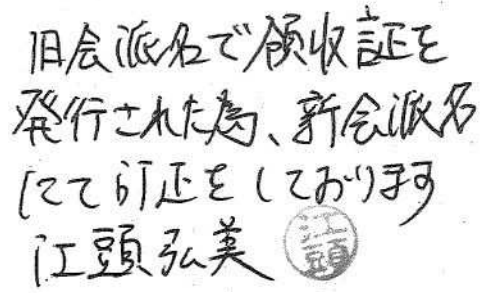 旧会派名で領収証を
発行された為、新会派名
にて訂正をしております
江頭弘美
江頭